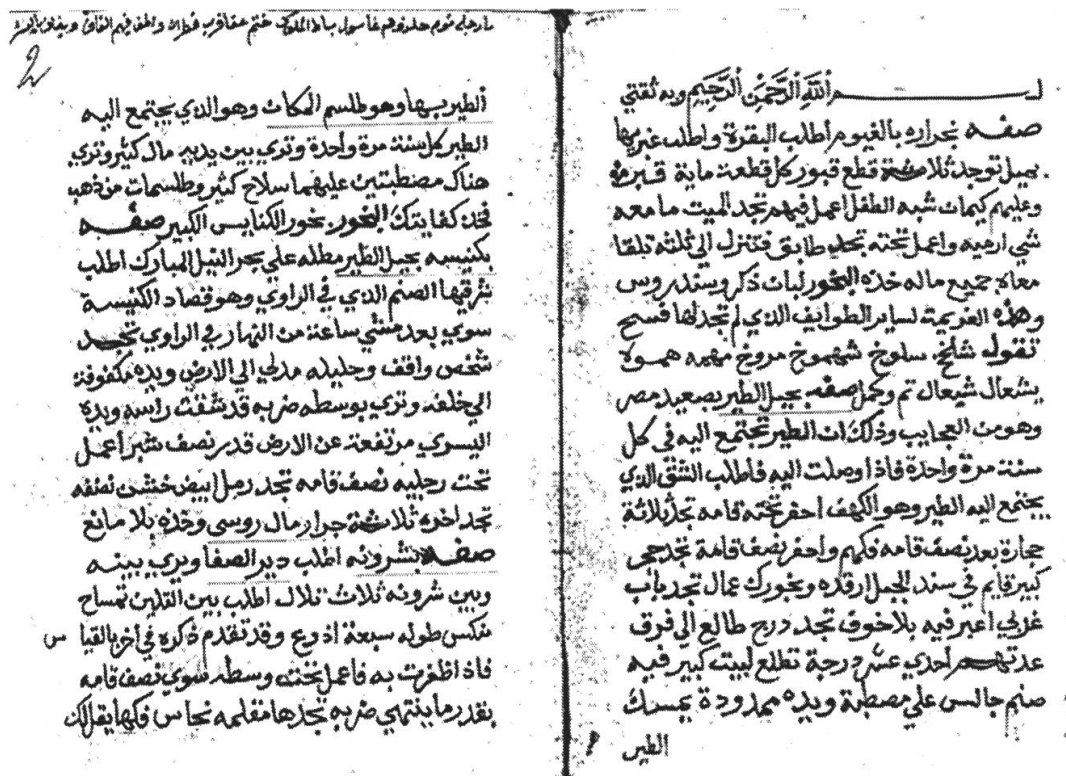 بسم الله الرحمن الرحيم وبه ثقتي
صفه نجراره بالفيوم أطلب البقرة واطلب غربيها
بميل توجد ثلاثة قطع قبور كل قطعة ماية قبر
وعليهم كيمات شبه الطفل اعمل فيهم تجد الميت مامعه
شي ارميه واعمل تحته تجد طابق فتنزل الي ثلثه تلقا
معاه جميع ماله خذه البخور لبان ذكر وسندروس
وهذه العزيمة لساير الطوايف الذي لم تجد لها فسح
تقول شلخ سلوخ شهموخ مروخ مهمه همولا
يشعال شيعال تم وكمل صفه بجبل الطير بصعيد مصر
وهو من العجايب وذلك ان الطير تجتمع اليه في كل
سنة مرة واحدة فاذا وصلت اليه فاطلب الشق الذي
يجتمع اليه الطير وهو الكهف احفر تحته قامه تجد ثلاثة
حجارة بعد نصف قامه فكهم واحفر نصف قامة تجد حجر
كبير قايم في سند الجبل ارقده وبخورك عمال تجد باب
غربي اعبر فيه بلا خوف تجد درج طالع الي فوق
عدتهم احدي عشر درجة تطلع لبيت كبير فيه
صنم جالس علي مصطبة ويده ممدودة يمسك
الطير
2
الطير بها وهو طلسم المكان وهو الذي يجتمع اليه
الطير كل سنة مرة واحدة وتري بين يديه مال كثير وتري
هناك مصطبتين عليهما سلاح كثير وطلسمات من ذهب
فخذ كفايتك البخور بخور الكنايس الكبير صفه
بكنيسه بجبل الطير مطله علي بحر النيل المبارك اطلب
شرقيها الصنم الذي في الراوي وهو قصاد الكنيسة
سوي بعد مشي ساعة من النهار في الراوي تجد
شخص واقف وجليله مدلي الي الارض ويده مكفوفة
الي خلفه وتري بوسطه ضربه قد شقت راسه ويده
اليسري مرتفعة عن الارض قدر نصف شبر أعمل
تحت رجليه نصف قامه تجد رمل ابيض خشن نظفه
تجد اخره ثلاثة جرار مال روسي وخذه بلا مانع
صفه بشرونه اطلب دير الصفا ويري بينه
وبين شرونه ثلاث تلال اطلب بين التلين تمساح
منكس طوله سبعة اذرع وقد تقدم ذكره في اخر بالقيا س
فاذا ظفرت به فاعمل تحت وسطه سوي نصف قامه
بقدر ما ينتهي ضربه تجدها مقلمه نحاس فكها يقل لك